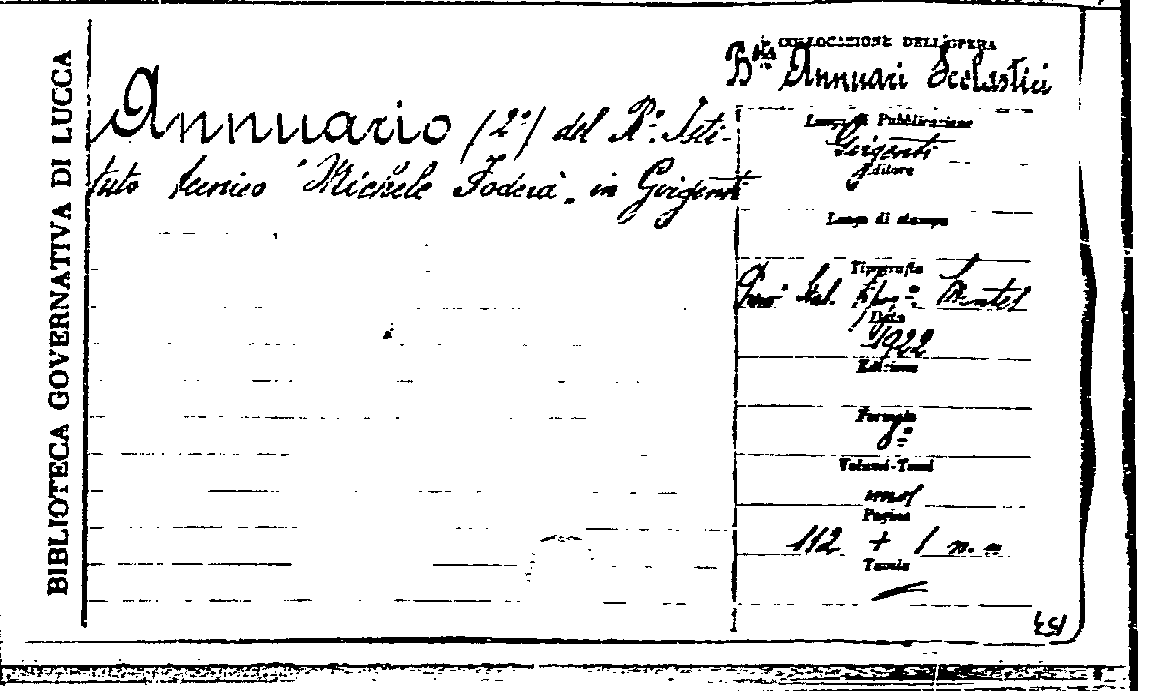 BIBLIOTECA GOVERNATIVA DI LUCCA
Annuario (2°) del R°. Isti-
tuto tecnico "Michele Foderà" in Girgenti
COLLOCAZIONE DELL'OPERA
Bta Annuari Scolastici
Luogo di Pubblicazione
Girgenti
Editore
Luogo di stampa
Tipografia
Montes
Data
1922
Edizione
Formato
8°
Volumi-Tomi
uno
Pagine
112 + 1 n. n
Tavole
153